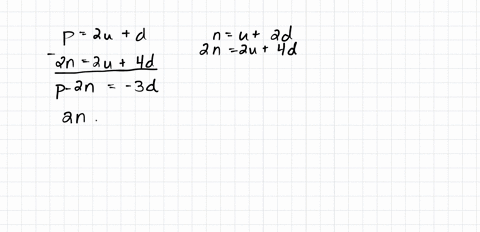 p = 2u + d
- 2n = 2u + 4d
p - 2n = -3d
2n .
n = u + 2d
2n = 2u + 4d